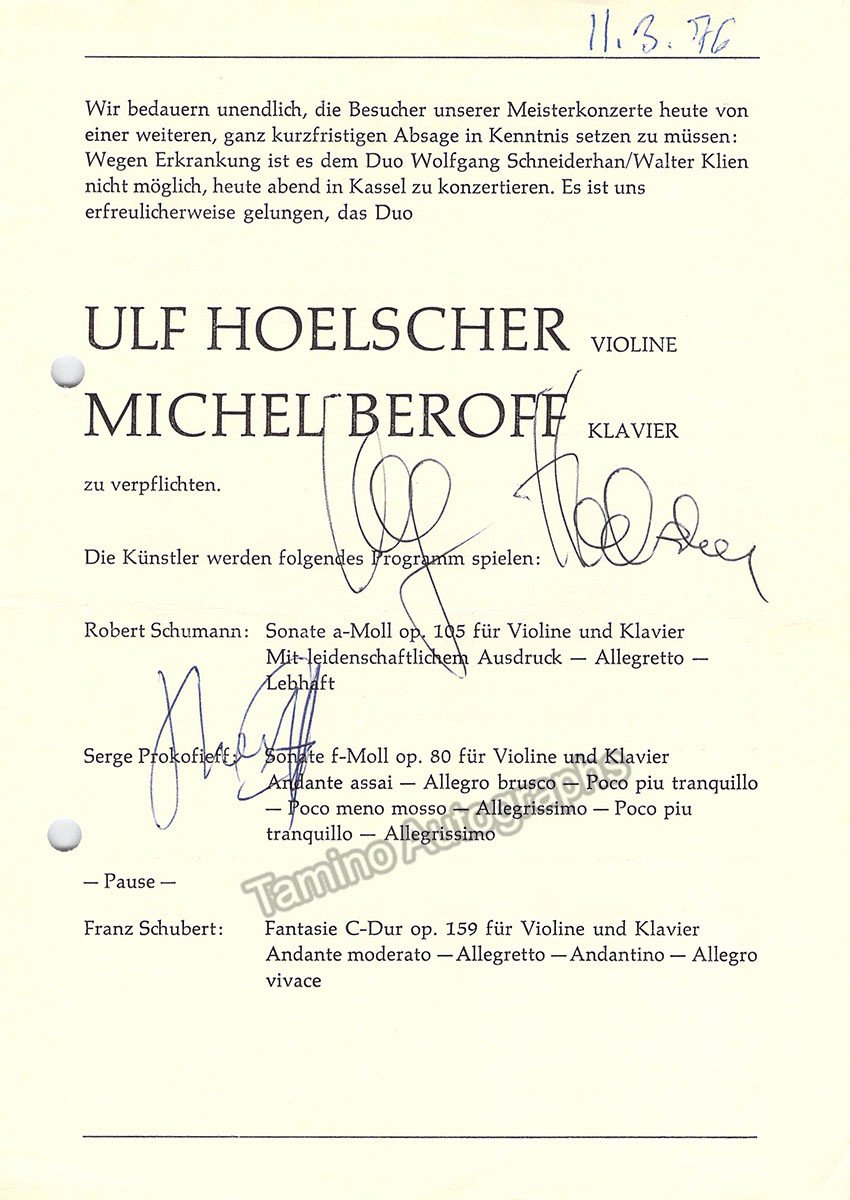 11. 3. 76
Wir bedauern unendlich, die Besucher unserer Meisterkonzerte heute von
einer weiteren, ganz kurzfristigen Absage in Kenntnis setzen zu müssen:
Wegen Erkrankung ist es dem Duo Wolfgang Schneiderhan/Walter Klien
nicht möglich, heute abend in Kassel zu konzertieren. Es ist uns
erfreulicherweise gelungen, das Duo
ULF HOELSCHER VIOLINE
MICHEL BEROFF KLAVIER
zu verpflichten.
Ulf Hoelscher
Die Künstler werden folgendes Programm spielen:
Robert Schumann: Sonate a-Moll op. 105 für Violine und Klavier
Mit leidenschaftlichem Ausdruck — Allegretto —
Lebhaft
Serge Prokofieff: Sonate f-Moll op. 80 für Violine und Klavier
Andante assai — Allegro brusco — Poco piu tranquillo
— Poco meno mosso — Allegrissimo — Poco piu
tranquillo — Allegrissimo
Tamino Autographs
— Pause —
Franz Schubert: Fantasie C-Dur op. 159 für Violine und Klavier
Andante moderato — Allegretto — Andantino — Allegro
vivace